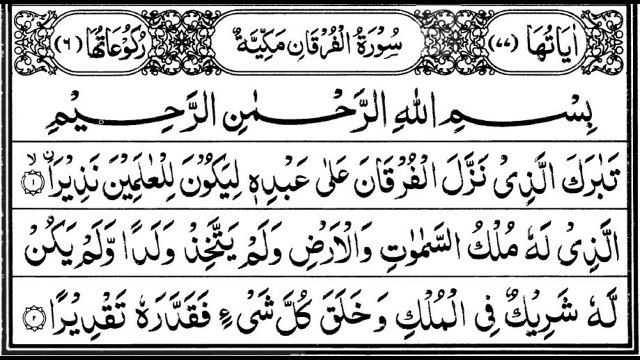 اٰيَاتُهَا (٧٧) سُوْرَةُ الْفُرْقَانِ مَكِّيَّةٌ رُكُوْعَاتُهَا (٦)
بِسْمِ اللّٰهِ الرَّحْمٰنِ الرَّحِيْمِ
تَبٰرَكَ الَّذِىْ نَزَّلَ الْفُرْقَانَ عَلٰى عَبْدِهٖ لِيَكُوْنَ لِلْعٰلَمِيْنَ نَذِيْرَاۙ ۟ۙ ﴿١﴾
الَّذِىْ لَهٗ مُلْكُ السَّمٰوٰتِ وَالْاَرْضِ وَلَمْ يَتَّخِذْ وَلَدًا وَّلَمْ يَكُنْ
لَّهٗ شَرِيْكٌ فِى الْمُلْكِ وَخَلَقَ كُلَّ شَىْءٍ فَقَدَّرَهٗ تَقْدِيْرًا ﴿٢﴾